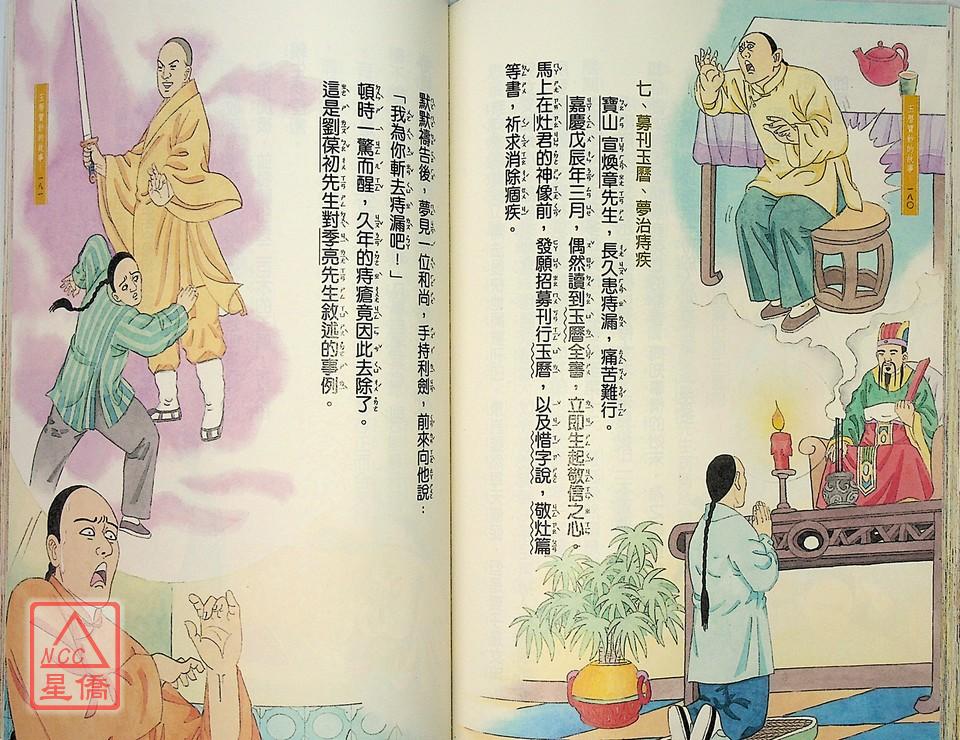 玉曆寶鈔的故事 一八〇
七、募刊玉曆、夢治痔疾
寶山宣煥章先生，長久患痔漏，痛苦難行。
嘉慶戊辰年三月，偶然讀到玉曆全書，立即生起敬信之心。
馬上在灶君的神像前，發願招募刊行玉曆，以及惜字說，敬灶篇
等書，祈求消除痼疾。
默默禱告後，夢見一位和尚，手持利劍，前來向他說：
「我為你斬去痔漏吧！」
頓時一驚而醒，久年的痔瘡竟因此去除了。
這是劉葆初先生對季亮先生敘述的事例。
玉曆寶鈔的故事 一八一
NCC
星僑